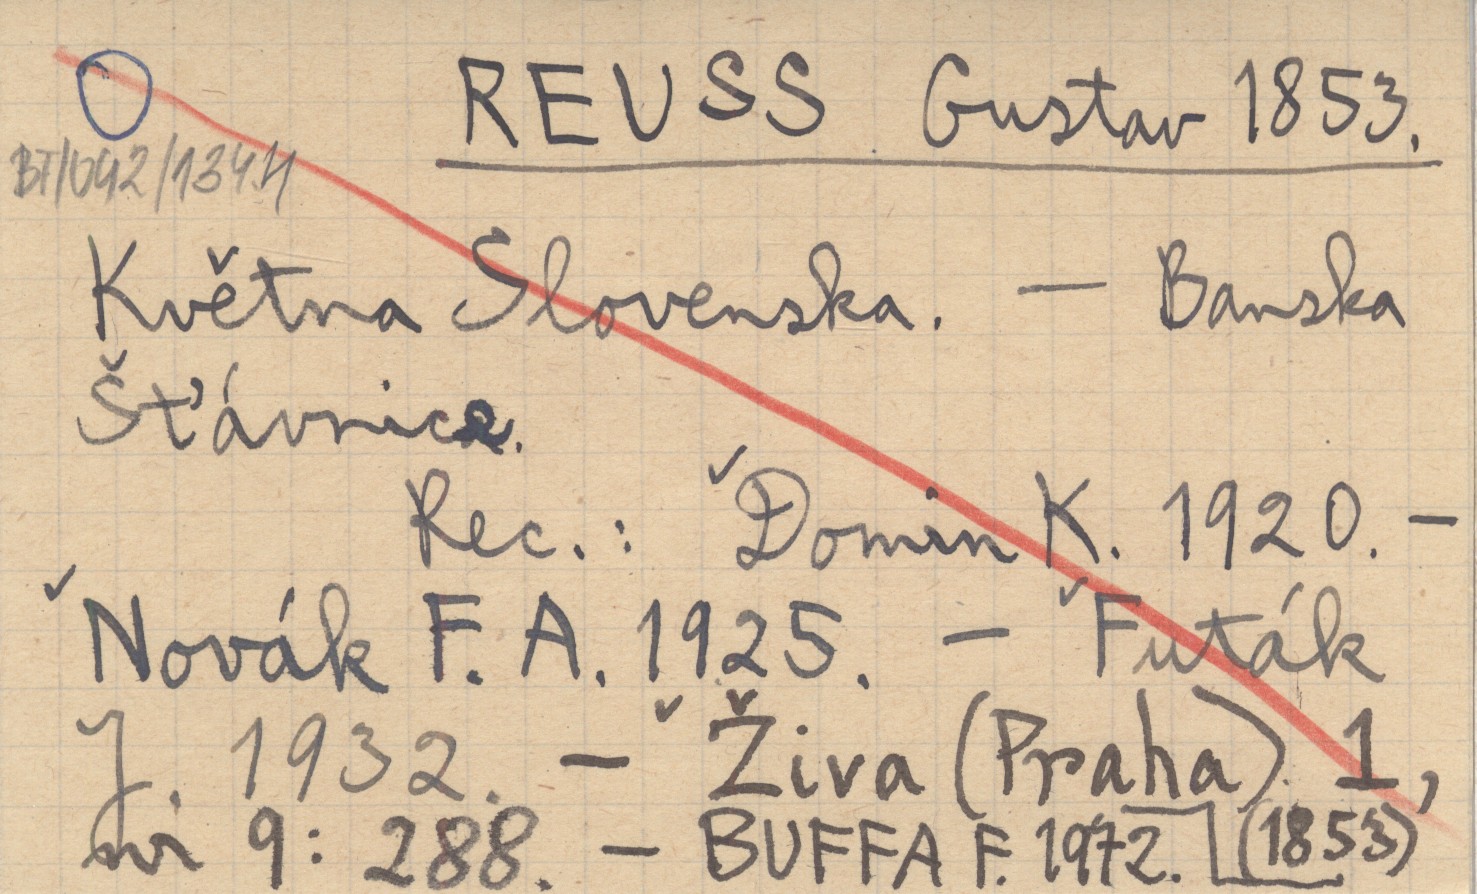 REUSS Gustav 1853.
BT/692/134.4
Května Slovenska. — Banska
Šťávnice.
Rec.: Domin K. 1920. —
Novák F. A. 1925. — Futák
J. 1932. — Živa (Praha) 1,
9: 288. — BUFFA F. 1972. (1853)